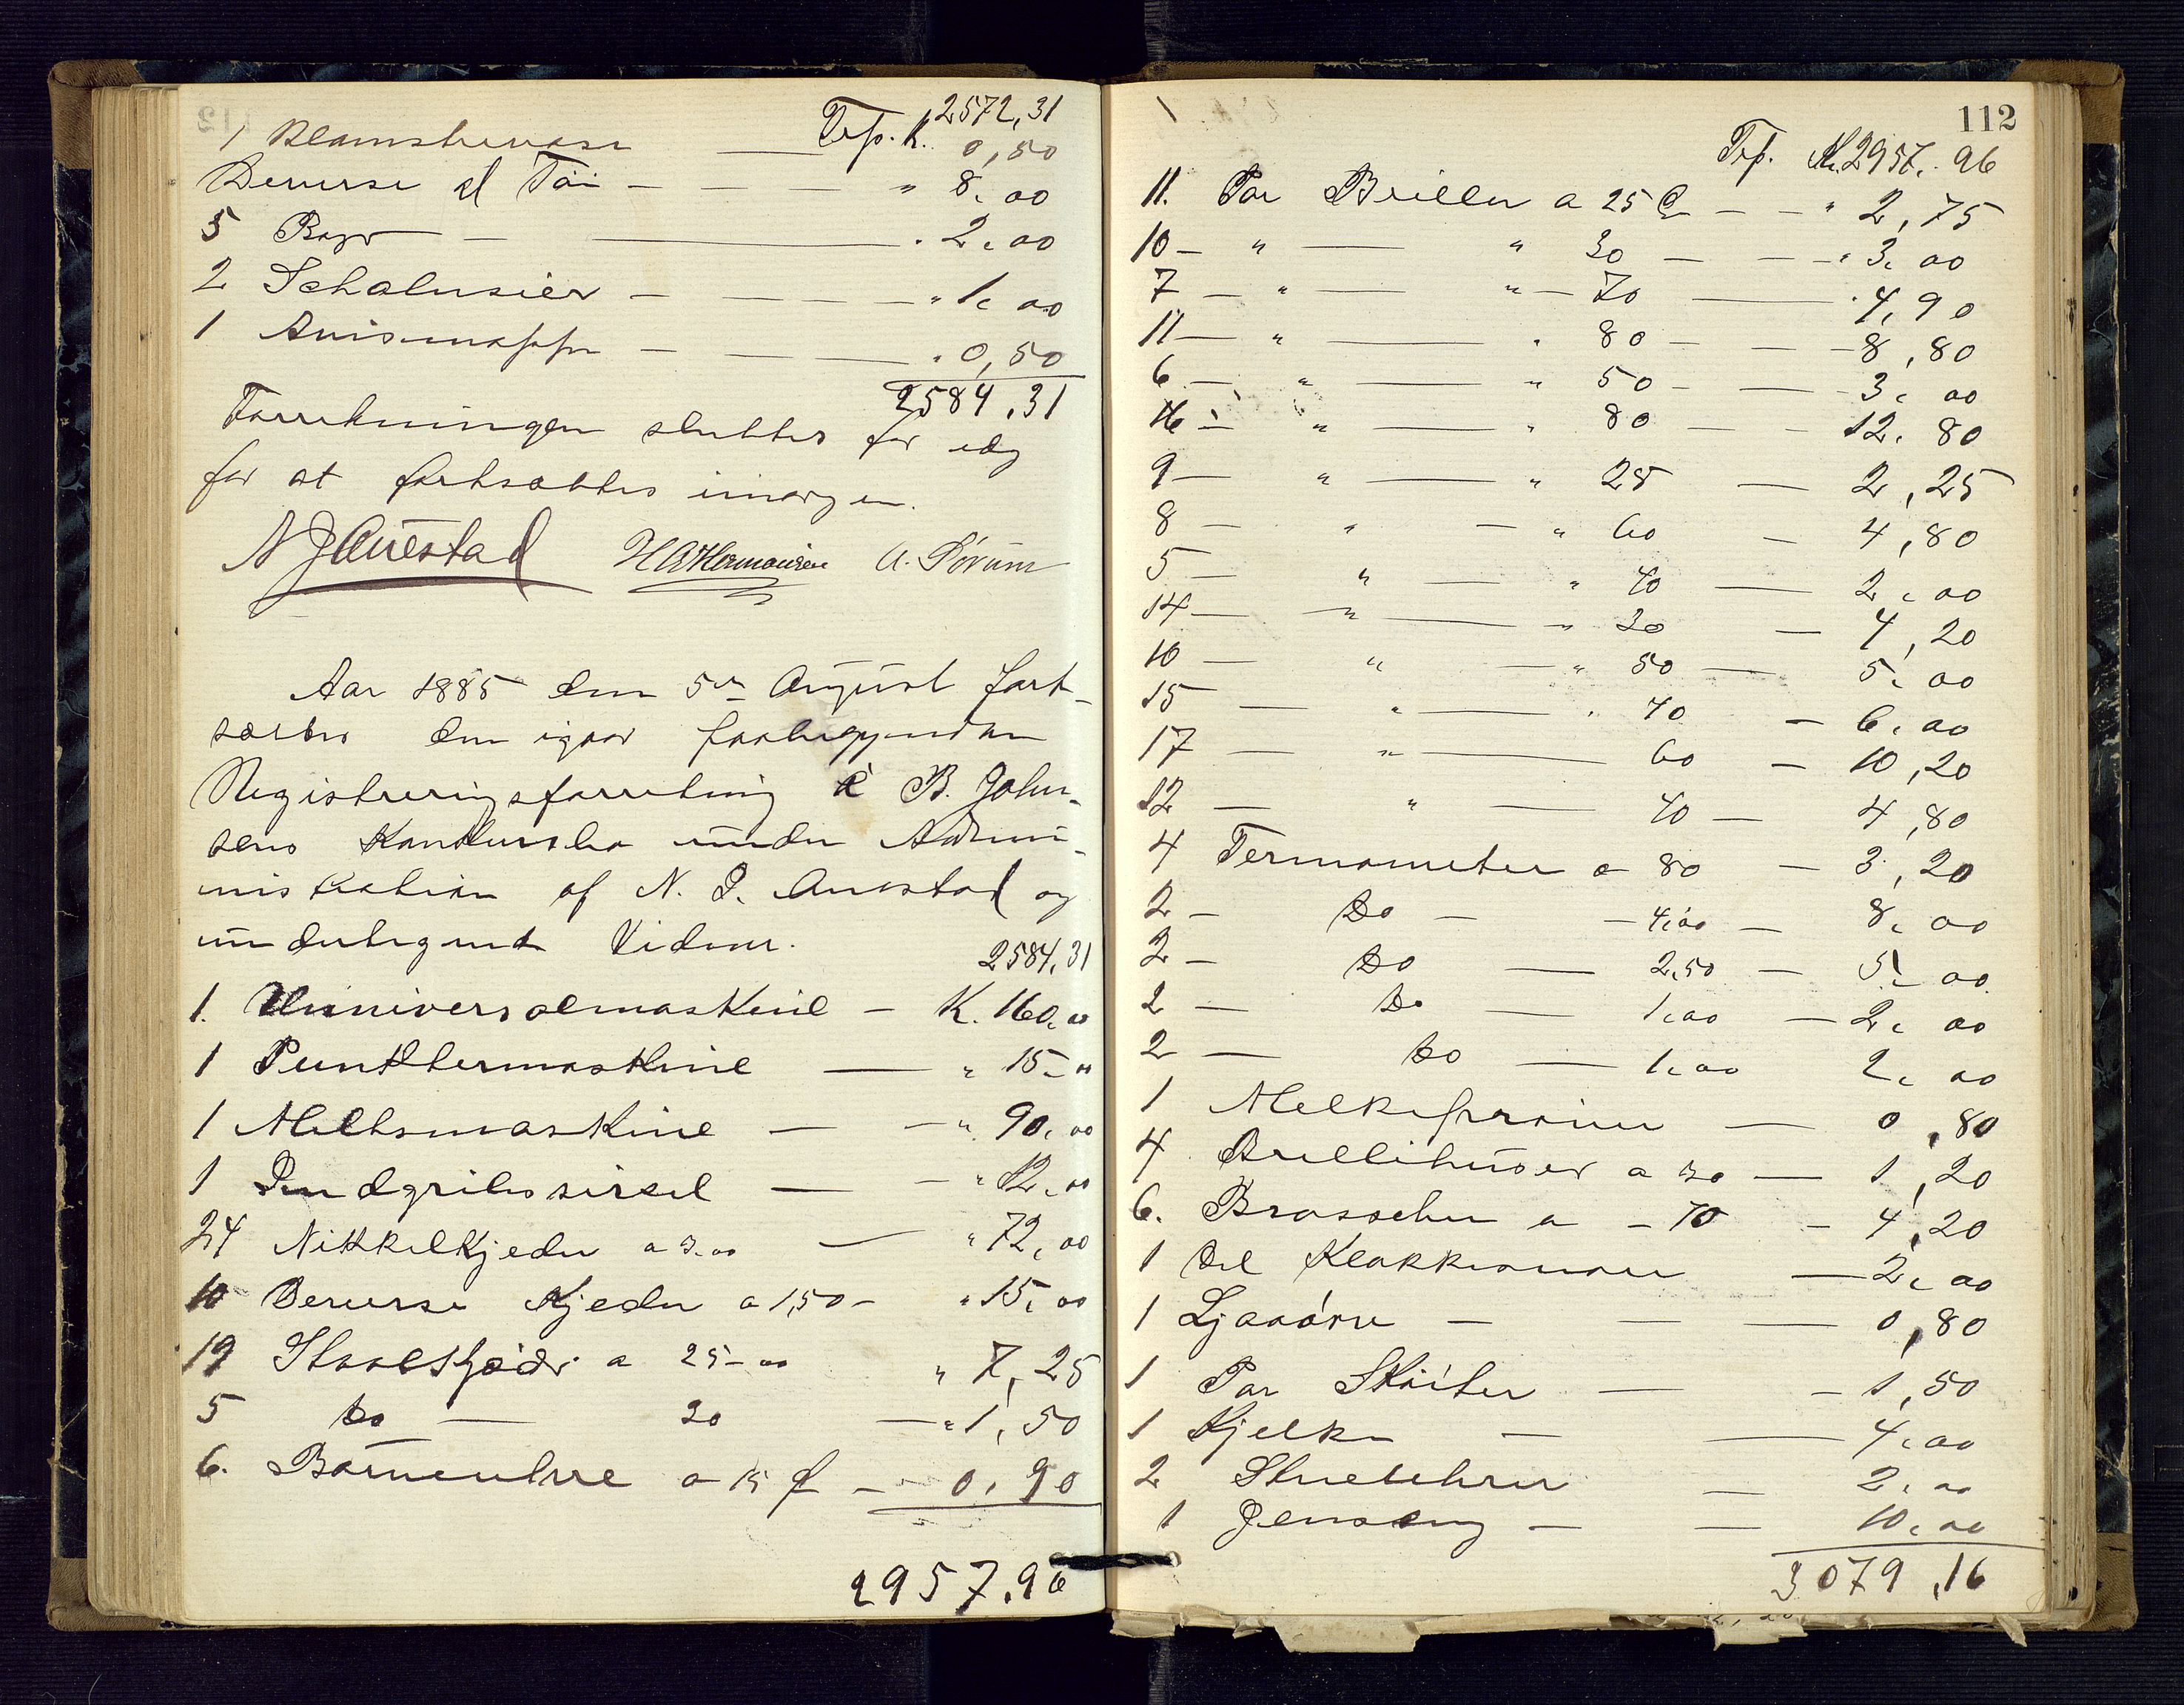 Trsp. K. 2572,31
1 Blomstervase — 0,50
Deverse Tøi — — — " 8,00
5 Bøger — — " 2,00
2 Schalusier — — — " 1,00
1 Avismappe — — " 0,50
2584,31
Forretningen sluttes for idag
for at fortsættes imorgen.
N J Auestad H A Hermansen A. Sørum
Aar 1885 den 5te August fort-
sattes den igaar paabegyndte
Registreringsforretning i B. John-
sens Konkursbo under Admi-
nistration af N. J. Auestad og
undertegnede Vidner.
2584,31
1. Universalmaskine — K. 160,00
1 Punktermaskine — " 15,00
1 Meltsmaskine — — " 90,00
1 Rundgribssirkel — — " 12,00
24 Nikkelkjeder a 3,00 — " 72,00
10 Deverse Kjeder a 1,50 — " 15,00
19 Staalkjæder a 25-00 " 7,25
5 Do — 30 — " 1,50
6. Barneuhre a 15 Ø — 0,90
2957,96
112
Trsp. Kr. 2957,96
11. Par Briller a 25 Ø — — " 2,75
10 — " — " 30 — — " 3,00
7 — " — " — 70 — " 4,90
11 — " — " 80 — — 8,80
6 — " — " 50 — — 3,00
16 — " — " 80 — — 12,80
9 — " — " 25 — 2,25
8 — " — " 60 — 4,80
5 — " — " 40 — 2,00
14 — " — " 30 — 4,20
10 — " — " 50 — 5,00
15 — " — " 40 — 6,00
17 — " — 60 — 10,20
12 — " — 40 — 4,80
4 Termometer a 80 — 3,20
2 — Do — — 4,00 — 8,00
2 — Do — 2,50 — 5,00
2 — Do — 1,00 — 2,00
2 — Do — 1,00 2,00
1 Melkeprøver — 0,80
4 Brillehuser a 30 — 1,20
6. Brosscher a — 70 — 4,20
1 Del Klokker — 2,00
1 — — — 0,80
1 Par Skøiter — — 1,50
1 Kjelke — — 4,00
2 Stueuhrer — 2,00
1 Jernseng — — 10,00
3079,16